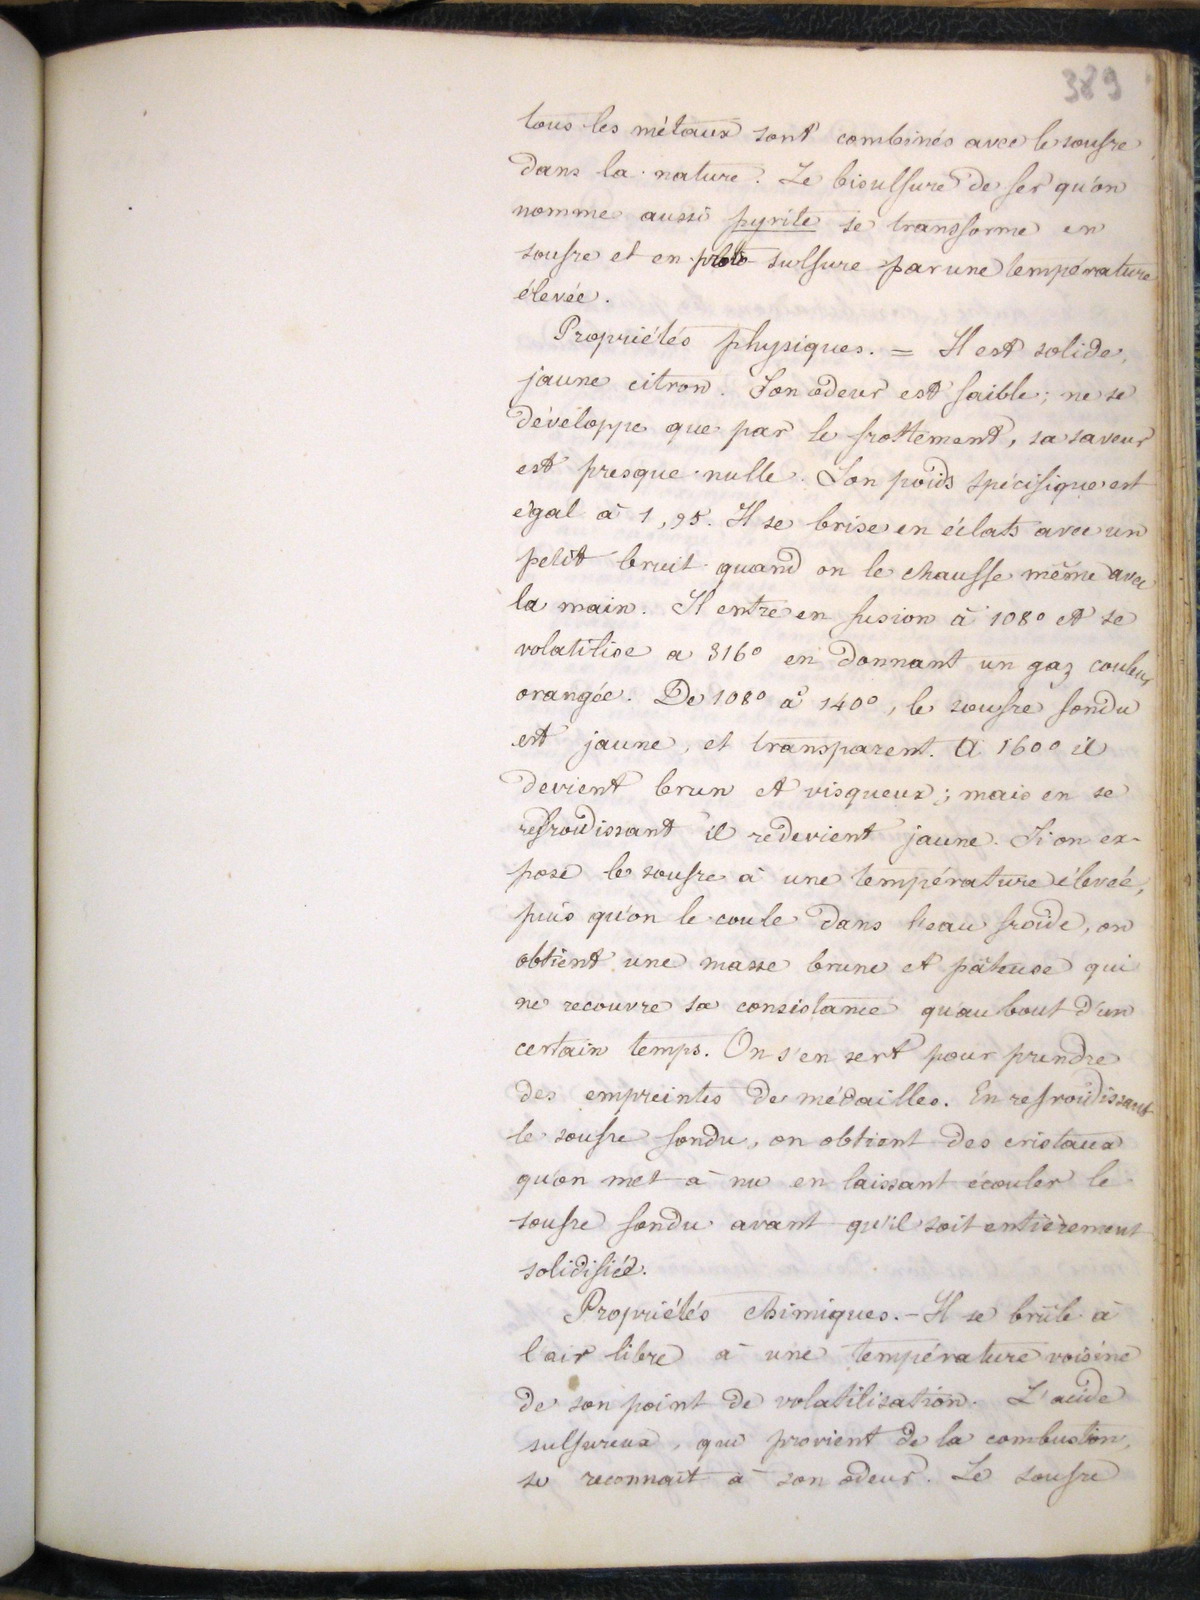 389
tous les métaux sont combinés avec le soufre
dans la nature. Le bisulfure de fer qu'on
nomme aussi pyrite se transforme en
soufre et en proto sulfure par une température
élevée.
Propriétés physiques. = Il est solide,
jaune citron. Son odeur est faible; ne se
développe que par le frottement, sa saveur
est presque nulle. Son poids spécifique est
égal à 1,95. Il se brise en éclats avec un
petit bruit quand on le chauffe même avec
la main. Il entre en fusion à 108° et se
volatilise a 316° en donnant un gaz couleur
orangée. De 108° à 140°, le soufre fondu
est jaune, et transparent. A 160° il
devient brun et visqueux; mais en se
refroidissant il redevient jaune. Si on ex-
pose le soufre à une température élevée,
puis qu'on le coule dans l'eau froide, on
obtient une masse brune et pâteuse qui
ne recouvre sa consistance qu'au bout d'un
certain temps. On s'en sert pour prendre
des empreintes de médailles. En refroidissant
le soufre fondu, on obtient des cristaux
qu'on met à nu en laissant écouler le
soufre fondu avant qu'il soit entièrement
solidifiée.
Propriétés chimiques. - Il se brûle à
l'air libre à une température voisine
de son point de volatilisation. L'acide
sulfureux, qui provient de la combustion,
se reconnait à son odeur. Le soufre